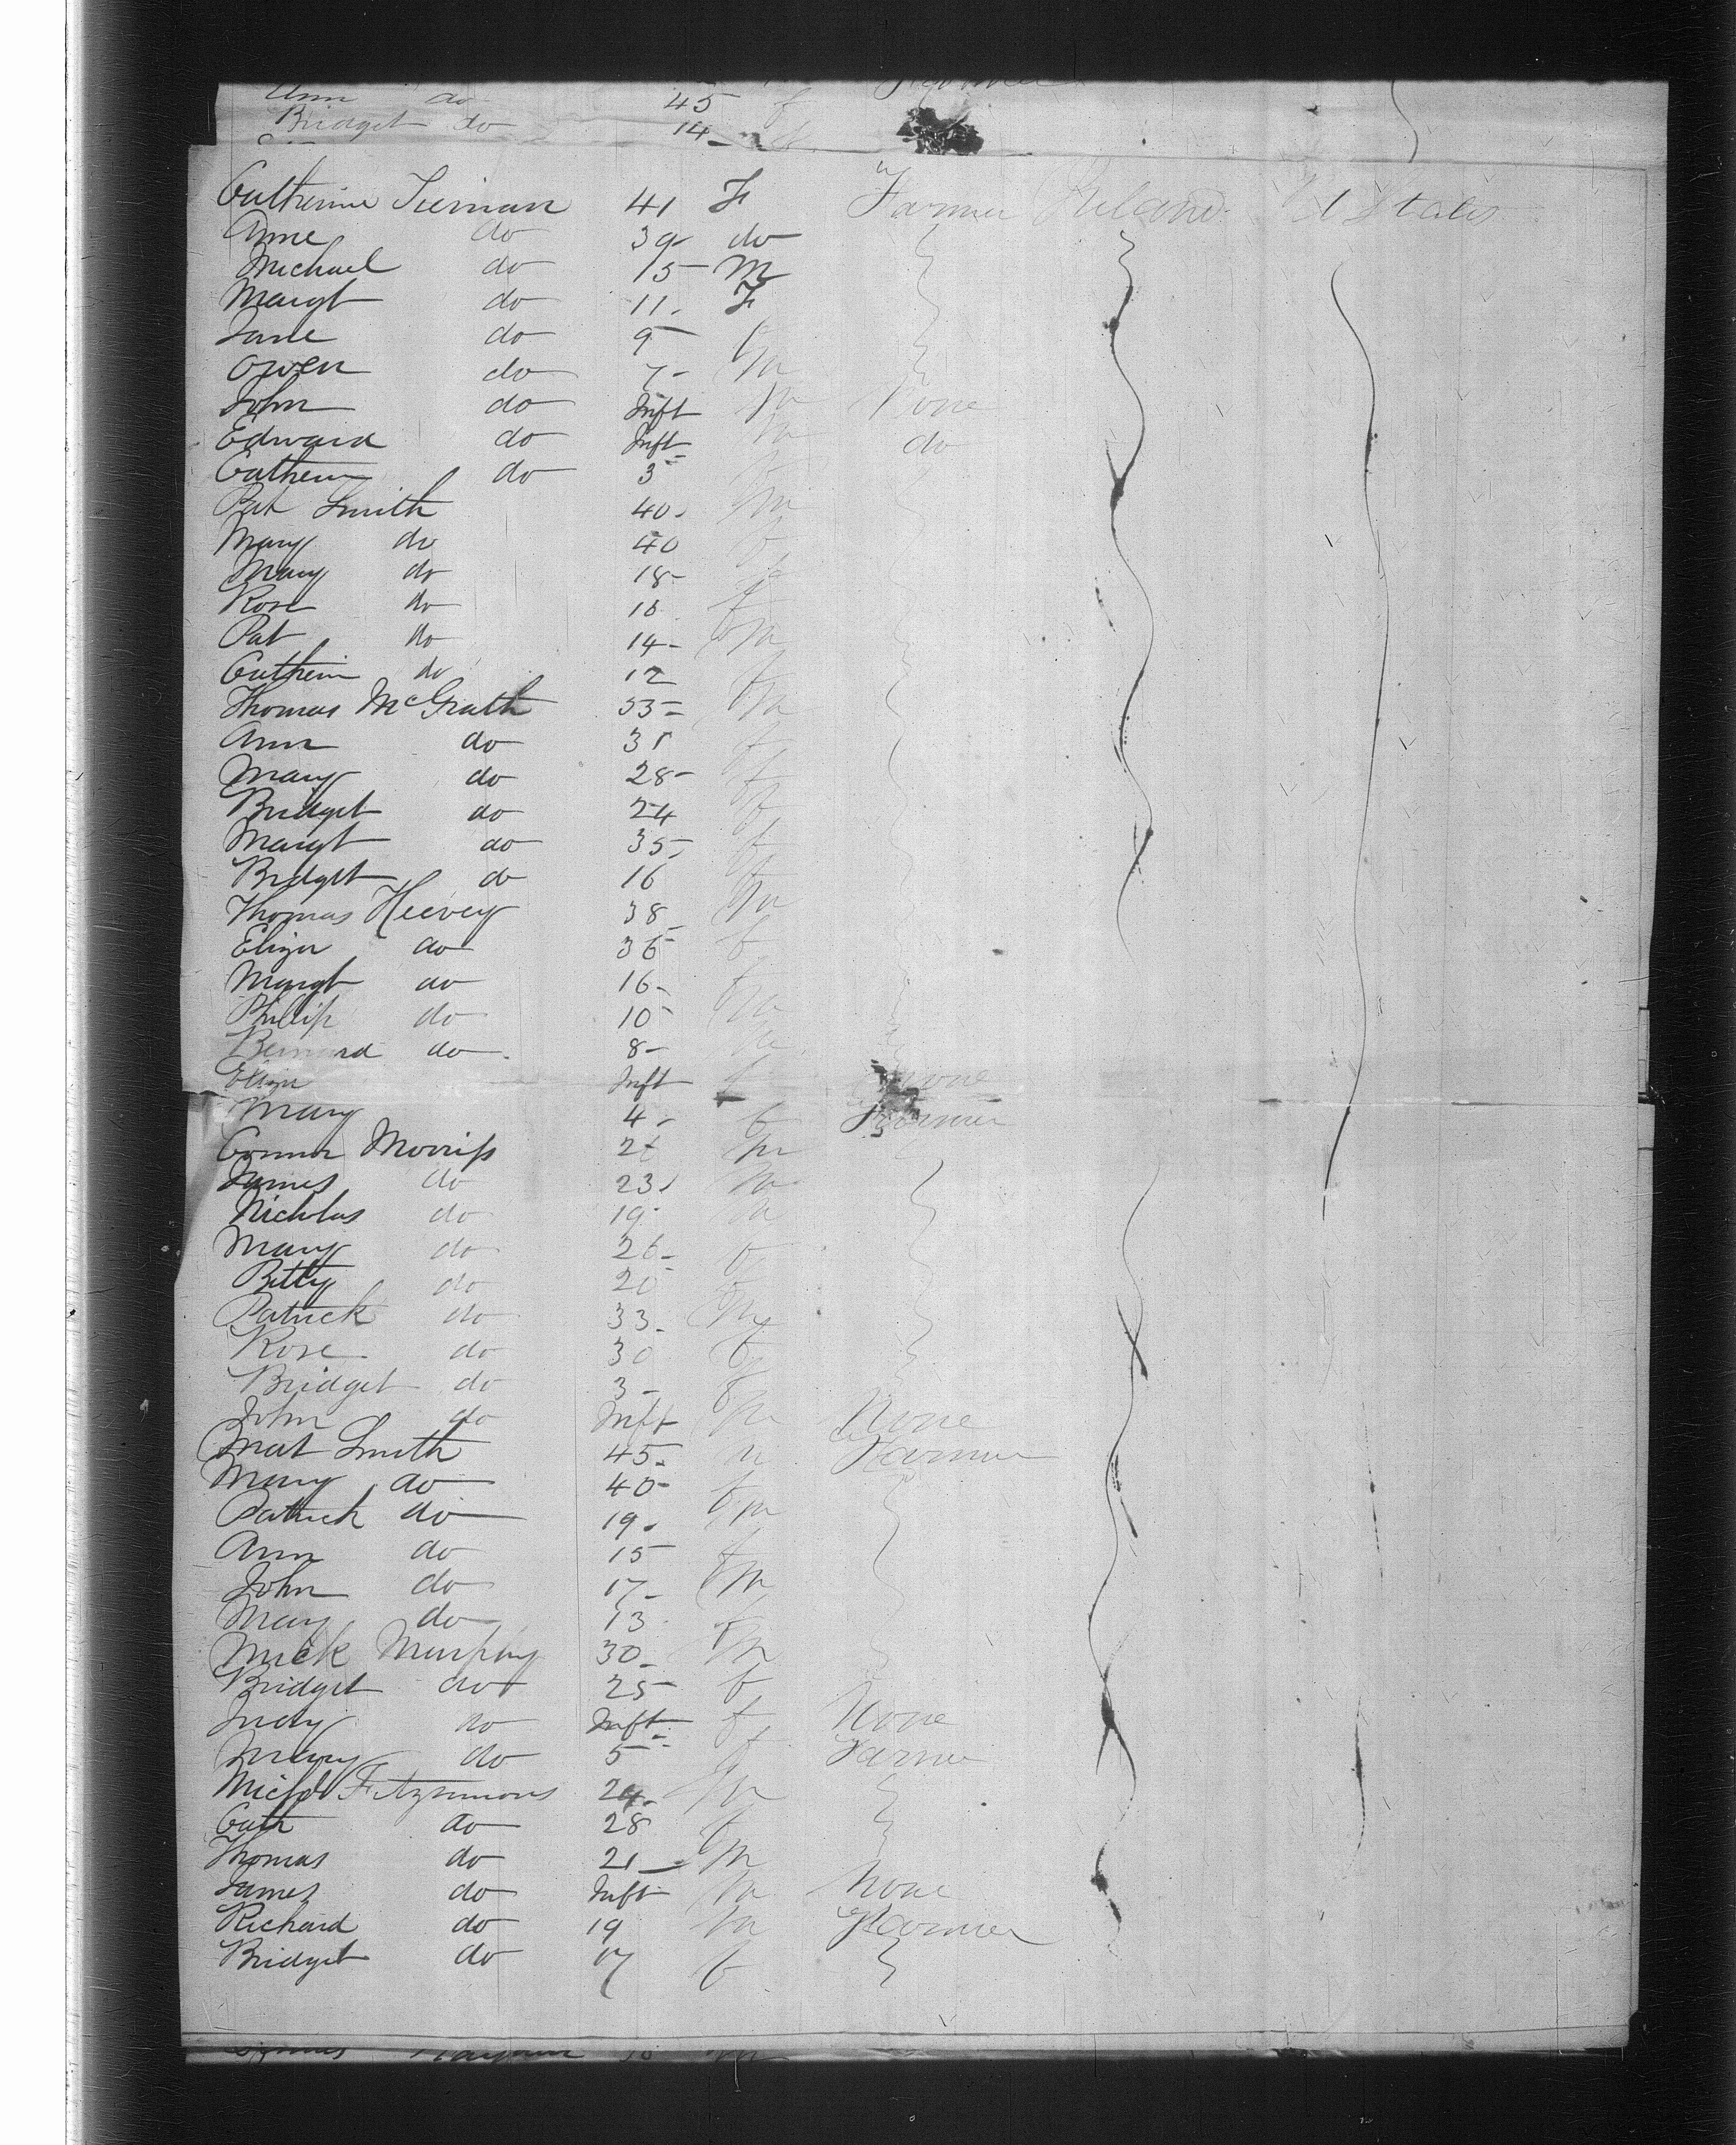 Ann do 45 f
Bridget do 14
Catherine Tiernan 41 F Farmer Ireland U States
Anne do 39 do
Michael do 15 M
Margt do 11 F
Jane do 9 f
Owen do 7 m
John do Inft m None
Edward do Inft m do
Cathern do 3 f
Pat Smith 40 m
Mary do 40 f
Mary do 18 f
Rose do 16 f
Pat do 14 m
Cathern do 12 f
Thomas McGrath 33 m
Ann do 31 f
Mary do 28 f
Bridget do 24 f
Margt do 35 f
Bridget do 16 f
Thomas Heevey 38 m
Eliza do 36 f
Margt do 16 f
Phillip do 10 m
Bernard do 8 m
Eliza Inft f None
Mary 4 f Farmer
Connor Morriss m
James do 23 m
Nichlas do 19 m
Mary do 26 f
Betty do 20 f
Patrick do 33 m
Rose do 30 f
Bridget do 3 f
John do Inft m None
Mat Smith 45 m Farmer
Mary do 40 f
Patrick do 19 m
Ann do 15 f
John do 17 m
Mary do 13 f
Mick Murphy 30 m
Bridget do 25 f
Judy do Inft f None
Mary do 5 f Farmer
Michl Fitzsimons 24 m
Cath do 28 f
Thomas do 21 m
James do Inft m None
Richard do 19 m Farmer
Bridget do 17 f